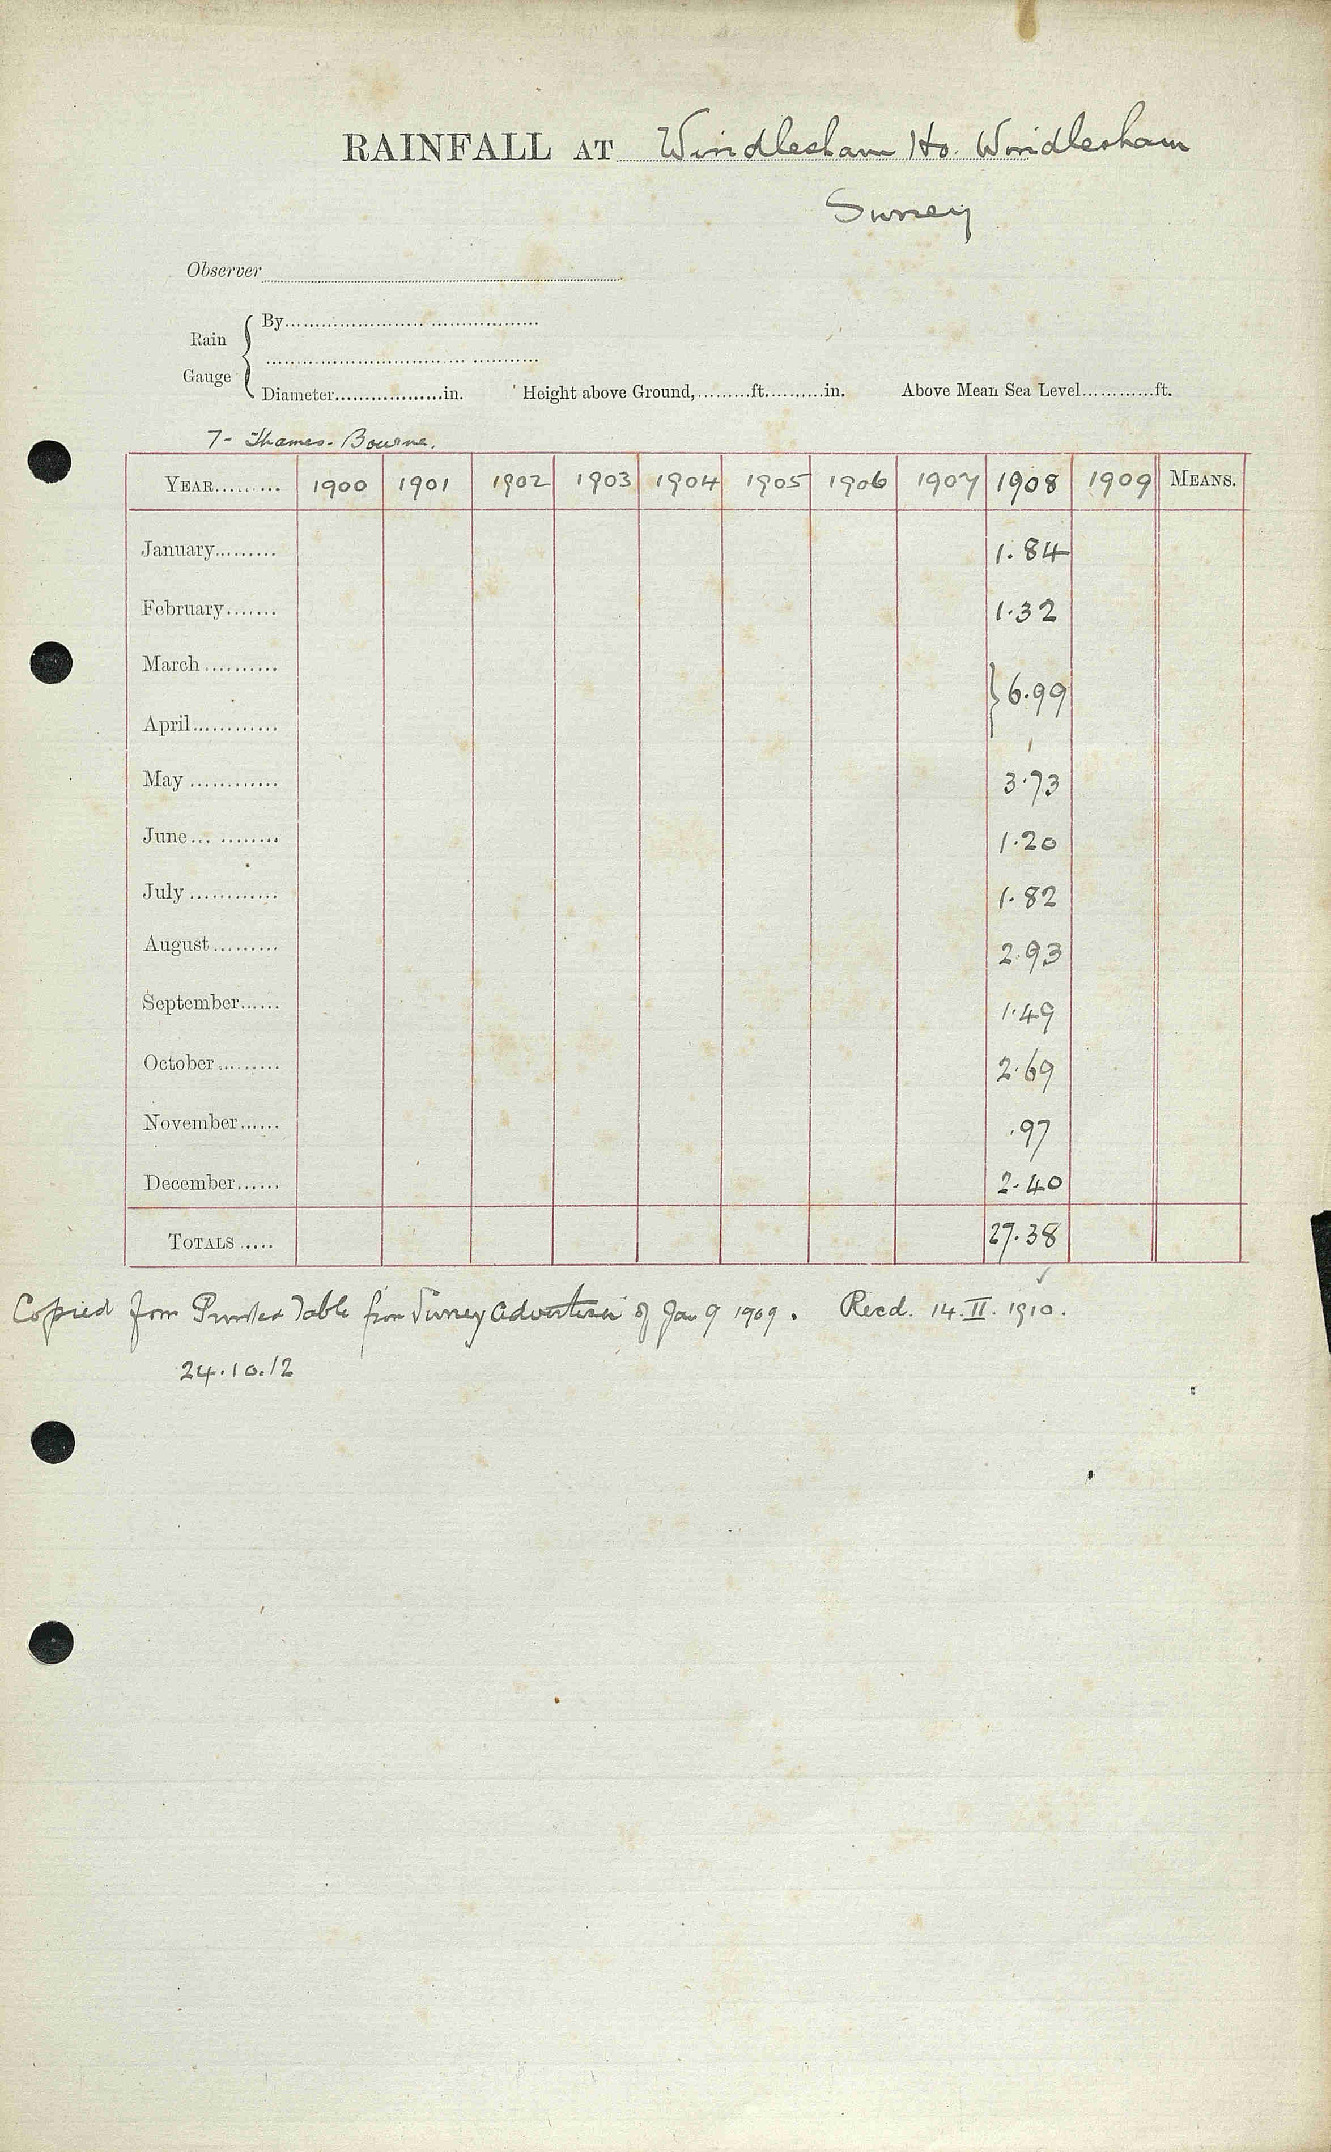 RAINFALL AT Windlesham Ho. Windlesham
Surrey
Observer
Rain Gauge { By
Diameter..................in. Height above Ground,.........ft..........in. Above Mean Sea Level............ft.
7- Thames- Bourne.
YEAR......... 1900 1901 1902 1903 1904 1905 1906 1907 1908 1909 MEANS.
January......... 1.84
February....... 1.32
March ..........
} 6.99
April............
May ............ 3.73
June... ........ 1.20
July ............ 1.82
August......... 2.93
September...... 1.49
October ......... 2.69
November...... .97
December...... 2.40
TOTALS ..... 27.38
Copied from Printed Table from Surrey Advertiser of Jan 9 1909. Recd. 14.II.1910.
24.10.12